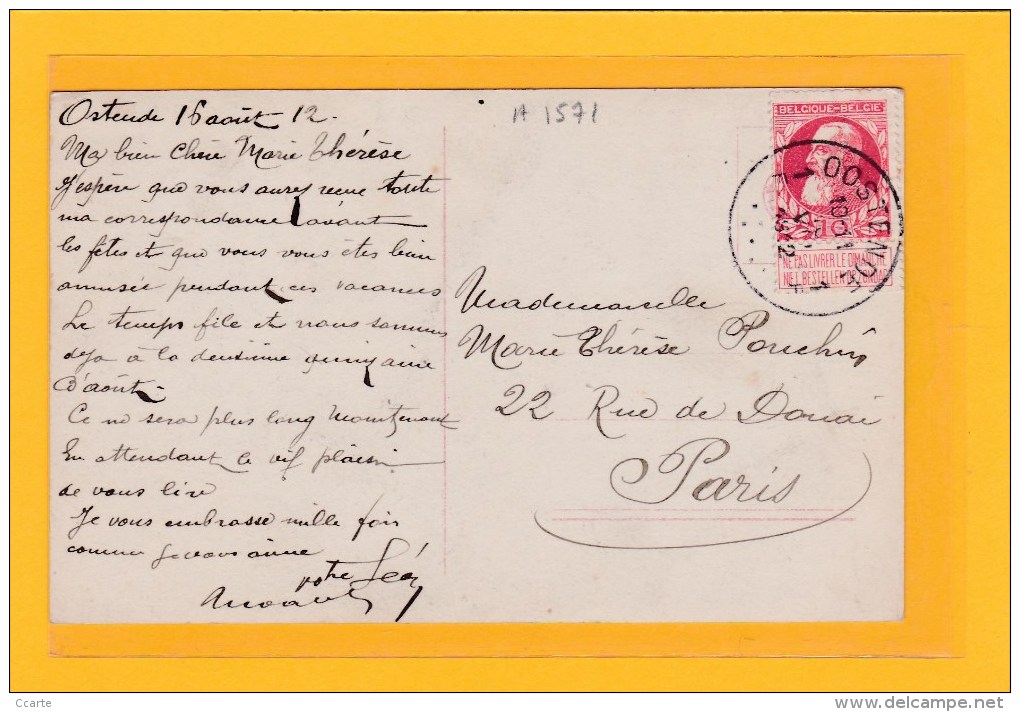 A 1571
Ostende 16 août 12.
Ma bien chère Marie Thérèse
J'espère que vous aurez reçue toute
ma correspondance avant
les fêtes et que vous vous êtes bien
amusée pendant ces vacances
Le temps file et nous sommes
déja à la deuxième quinzaine
d'août.
Ce ne sera plus long maintenant
En attendant le vif plaisir
de vous lire
Je vous embrasse mille fois
comme je vous aime
votre Léon
BELGIQUE-BELGIË
10
NE PAS LIVRER LE DIMANCHE
NIET BESTELLEN OP ZONDAG
OOSTENDE 1
1912
Mademoiselle
Marie Thérèse Pouchin
22 Rue de Douai
Paris
Ccarte
www.delcampe.net